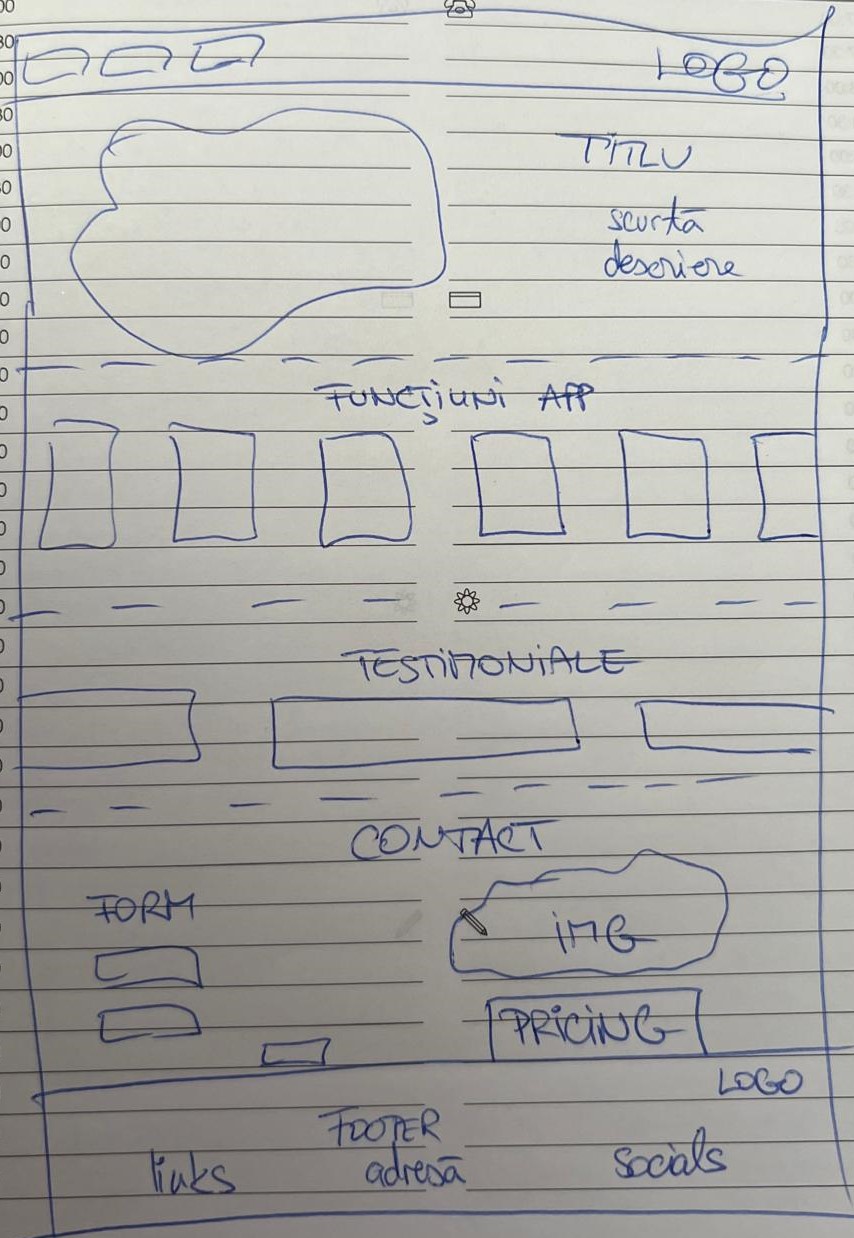 LOGO
TITLU
scurtă
descriere
FUNCȚIUNI APP
TESTIMONIALE
CONTACT
FORM
IMG
PRICING
LOGO
FOOTER
links adresă socials